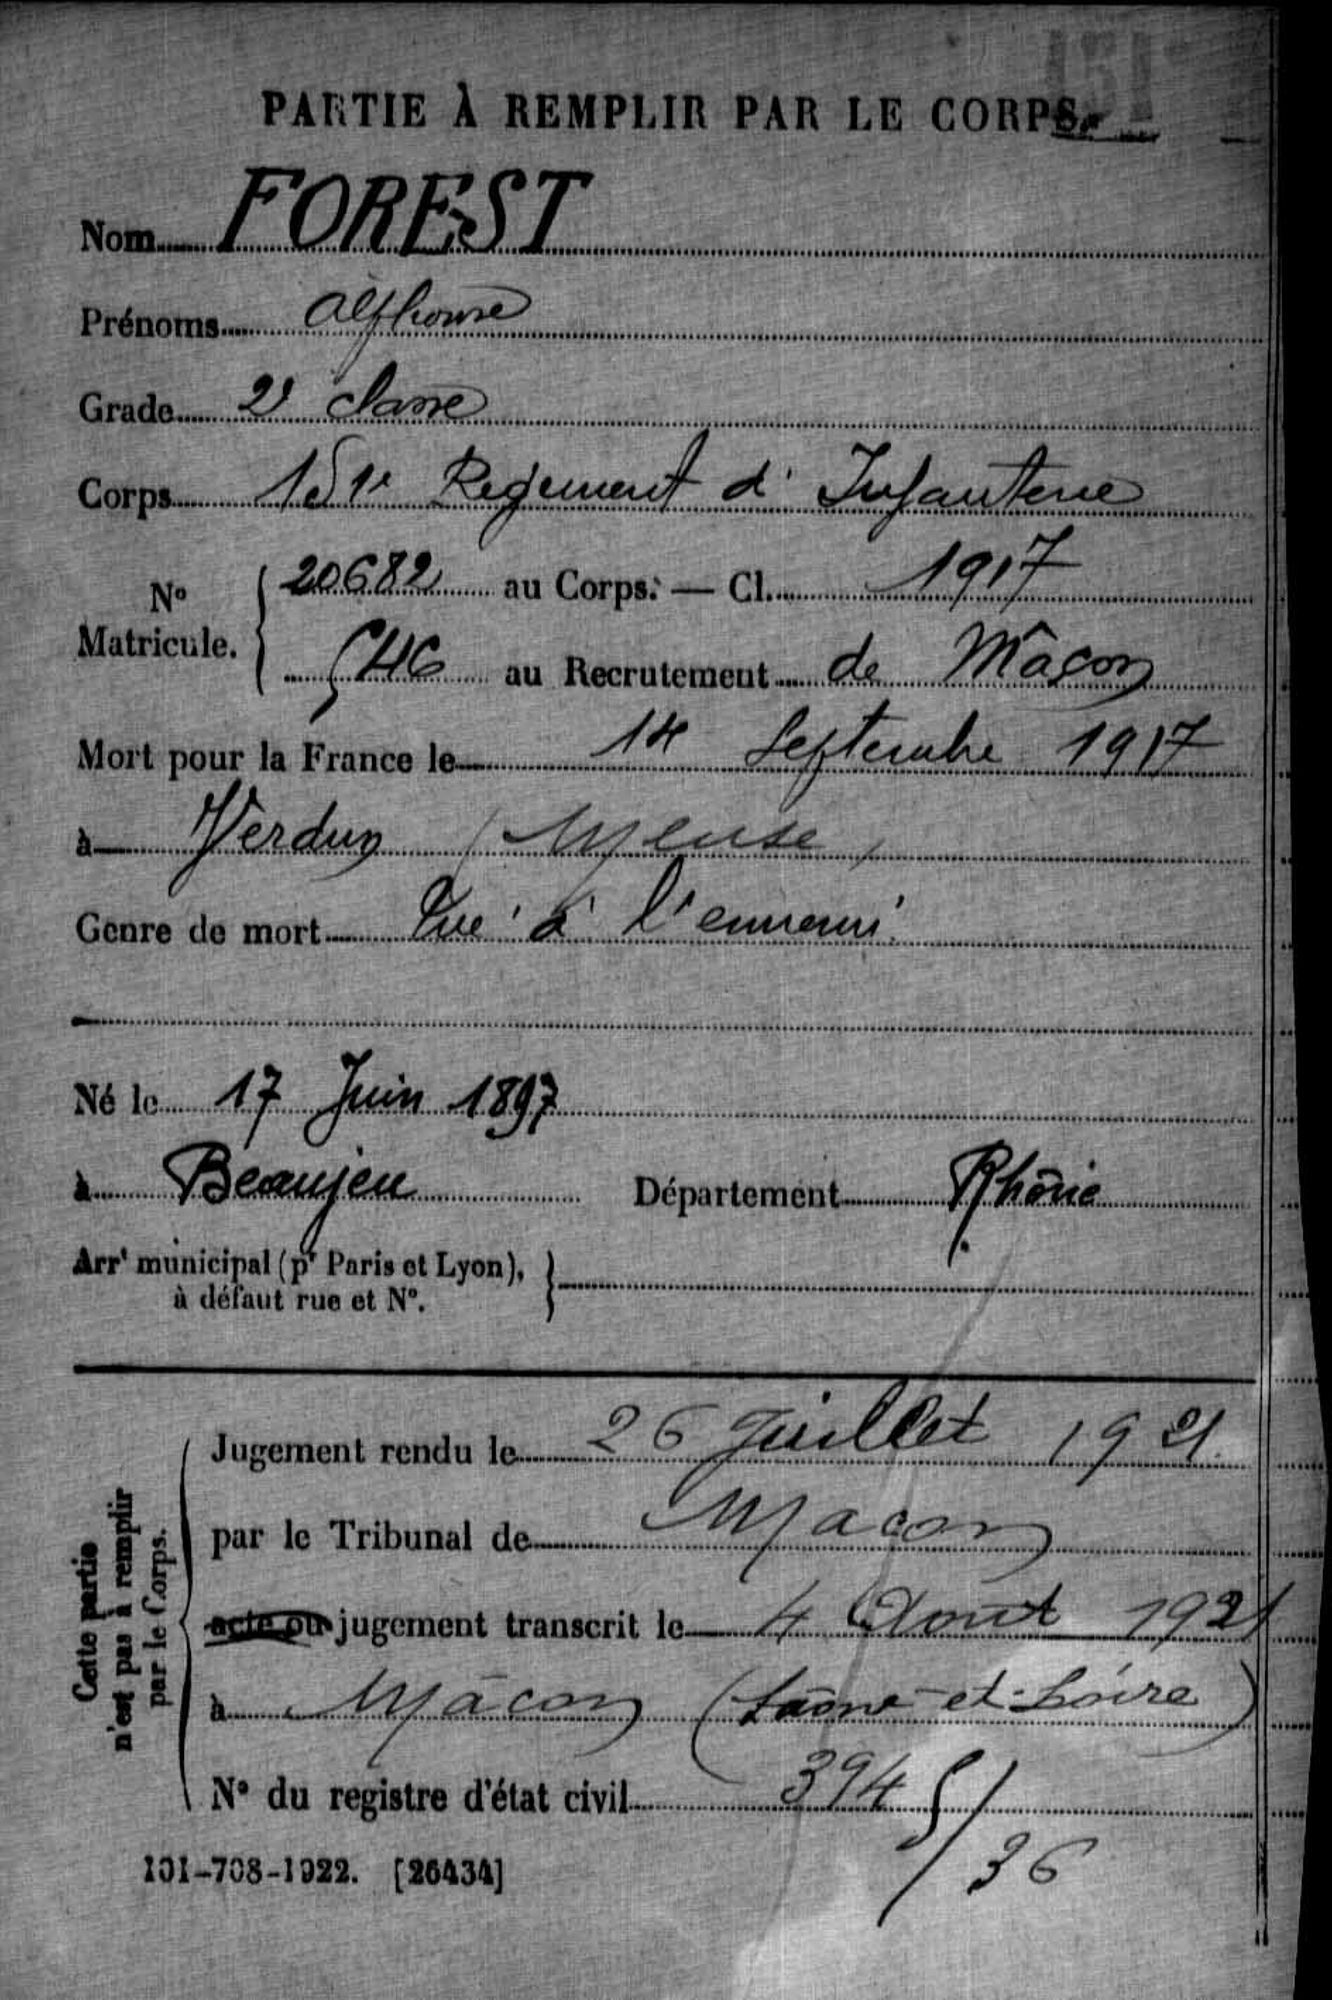 151
PARTIE À REMPLIR PAR LE CORPS.
Nom FOREST
Prénoms Alphonse
Grade 2e classe
Corps 151e Régiment d'Infanterie
No Matricule. 20682 au Corps. — Cl. 1917
546 au Recrutement de Mâcon
Mort pour la France le 14 Septembre 1917
à Verdun (Meuse)
Genre de mort Tué à l'ennemi
Né le 17 Juin 1897
à Beaujeu Département Rhône
Arrt municipal (pr Paris et Lyon),
à défaut rue et No.
Cette partie
n'est pas à remplir
par le Corps.
Jugement rendu le 26 Juillet 1921
par le Tribunal de Macon
acte ou jugement transcrit le 4 Aout 1921
à Mâcon (Saône-et-Loire)
No du registre d'état civil 394
5/36
101-708-1922. [26434]